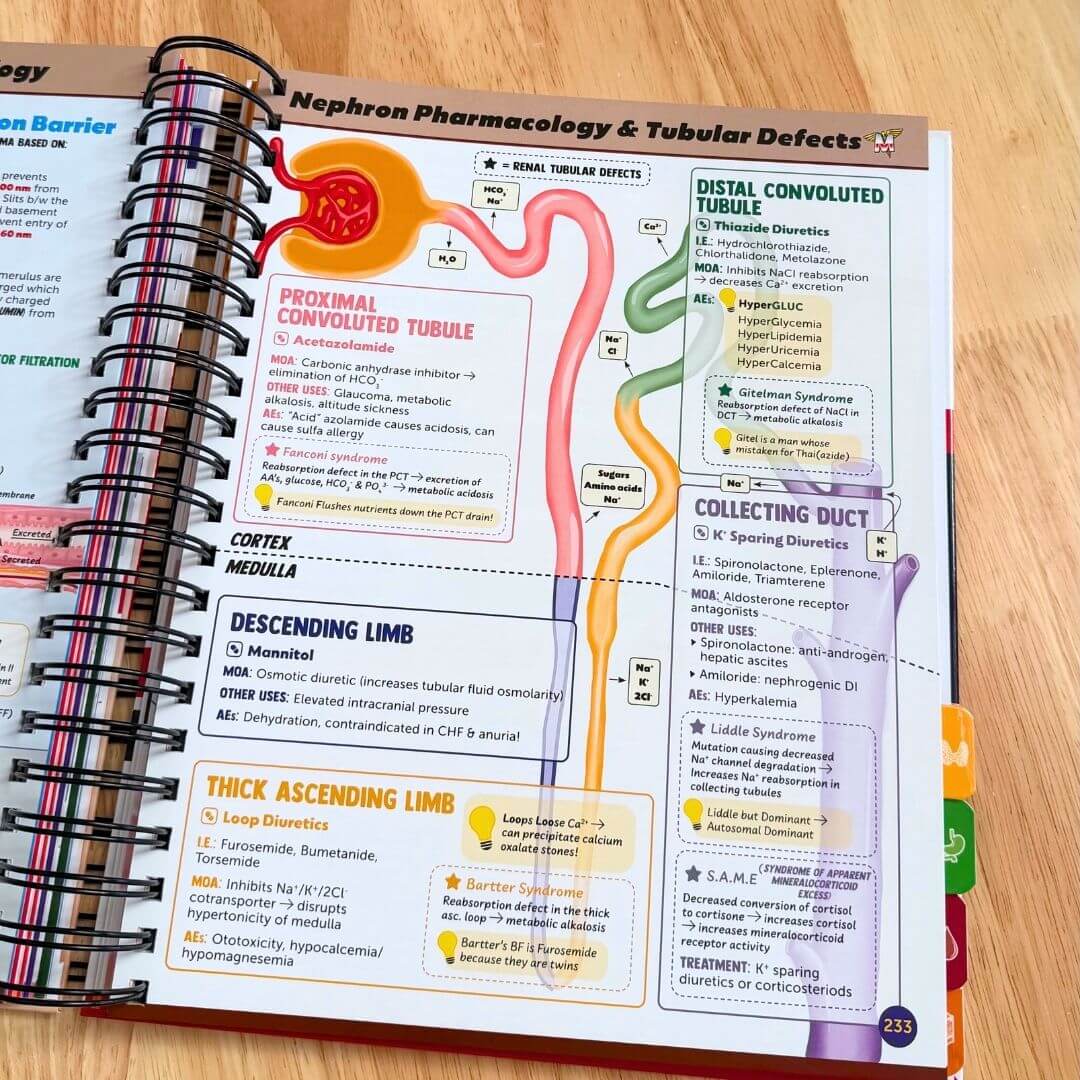 ogy
on Barrier
MA BASED ON:
prevents
00 nm from
Slits b/w the
basement
vent entry of
60 nm
merulus are
rged which
y charged
UMIN) from
OR FILTRATION
)
embrane
Excreted
Secreted
n II
ent
FF)
Nephron Pharmacology & Tubular Defects
M
★ = RENAL TUBULAR DEFECTS
HCO₃⁻
Na⁺
H₂O
PROXIMAL
CONVOLUTED TUBULE
Acetazolamide
MOA: Carbonic anhydrase inhibitor →
elimination of HCO₃⁻
OTHER USES: Glaucoma, metabolic
alkalosis, altitude sickness
AEs: "Acid" azolamide causes acidosis, can
cause sulfa allergy
★ Fanconi syndrome
Reabsorption defect in the PCT → excretion of
AA's, glucose, HCO₃⁻ & PO₄³⁻ → metabolic acidosis
Fanconi Flushes nutrients down the PCT drain!
CORTEX
MEDULLA
DESCENDING LIMB
Mannitol
MOA: Osmotic diuretic (increases tubular fluid osmolarity)
OTHER USES: Elevated intracranial pressure
AEs: Dehydration, contraindicated in CHF & anuria!
THICK ASCENDING LIMB
Loop Diuretics
I.E.: Furosemide, Bumetanide,
Torsemide
MOA: Inhibits Na⁺/K⁺/2Cl⁻
cotransporter → disrupts
hypertonicity of medulla
AEs: Ototoxicity, hypocalcemia/
hypomagnesemia
Loops Loose Ca²⁺ →
can precipitate calcium
oxalate stones!
★ Bartter Syndrome
Reabsorption defect in the thick
asc. loop → metabolic alkalosis
Bartter's BF is Furosemide
because they are twins
Sugars
Amino acids
Na⁺
Na⁺
K⁺
2Cl⁻
Na⁺
Cl⁻
Ca²⁺
DISTAL CONVOLUTED
TUBULE
Thiazide Diuretics
I.E.: Hydrochlorothiazide,
Chlorthalidone, Metolazone
MOA: Inhibits NaCl reabsorption
→ decreases Ca²⁺ excretion
AEs: HyperGLUC
HyperGlycemia
HyperLipidemia
HyperUricemia
HyperCalcemia
★ Gitelman Syndrome
Reabsorption defect of NaCl in
DCT → metabolic alkalosis
Gitel is a man whose
mistaken for Thai(azide)
Na⁺
K⁺
H⁺
COLLECTING DUCT
K⁺ Sparing Diuretics
I.E.: Spironolactone, Eplerenone,
Amiloride, Triamterene
MOA: Aldosterone receptor
antagonists
OTHER USES:
▸ Spironolactone: anti-androgen,
hepatic ascites
▸ Amiloride: nephrogenic DI
AEs: Hyperkalemia
★ Liddle Syndrome
Mutation causing decreased
Na⁺ channel degradation →
Increases Na⁺ reabsorption in
collecting tubules
Liddle but Dominant →
Autosomal Dominant
★ S.A.M.E (SYNDROME OF APPARENT
MINERALOCORTICOID
EXCESS)
Decreased conversion of cortisol
to cortisone → increases cortisol
→ increases mineralocorticoid
receptor activity
TREATMENT: K⁺ sparing
diuretics or corticosteriods
233